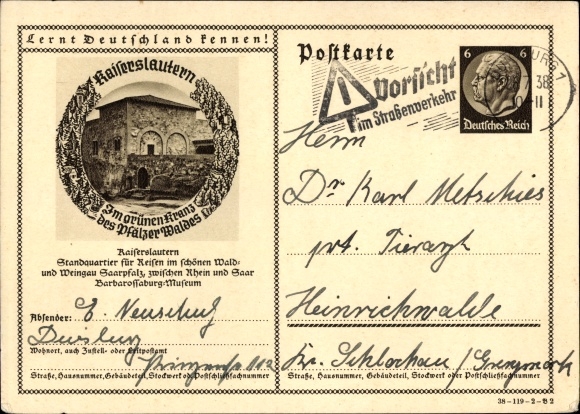 Lernt Deutschland kennen!
Kaiserslautern
Im grünen Kranz
des Pfälzer Waldes
Kaiserslautern
Standquartier für Reisen im schönen Wald-
und Weingau Saarpfalz, zwischen Rhein und Saar
Barbarossaburg-Museum
Absender: E.
Duisburg
Wohnort, auch Zustell- oder Leitpostamt
112
Straße, Hausnummer, Gebäudeteil, Stockwerk od. Postschließfachnummer
Postkarte
Vorsicht
im Straßenverkehr
URG 1
38
-11
6 6
Deutsches Reich
Herrn
Dr Karl Metschies
prt. Tierarzt
Heinrichswalde
Kr. Schlochau / Grenzmark
Straße, Hausnummer, Gebäudeteil, Stockwerk oder Postschließfachnummer
38-119-2-B2